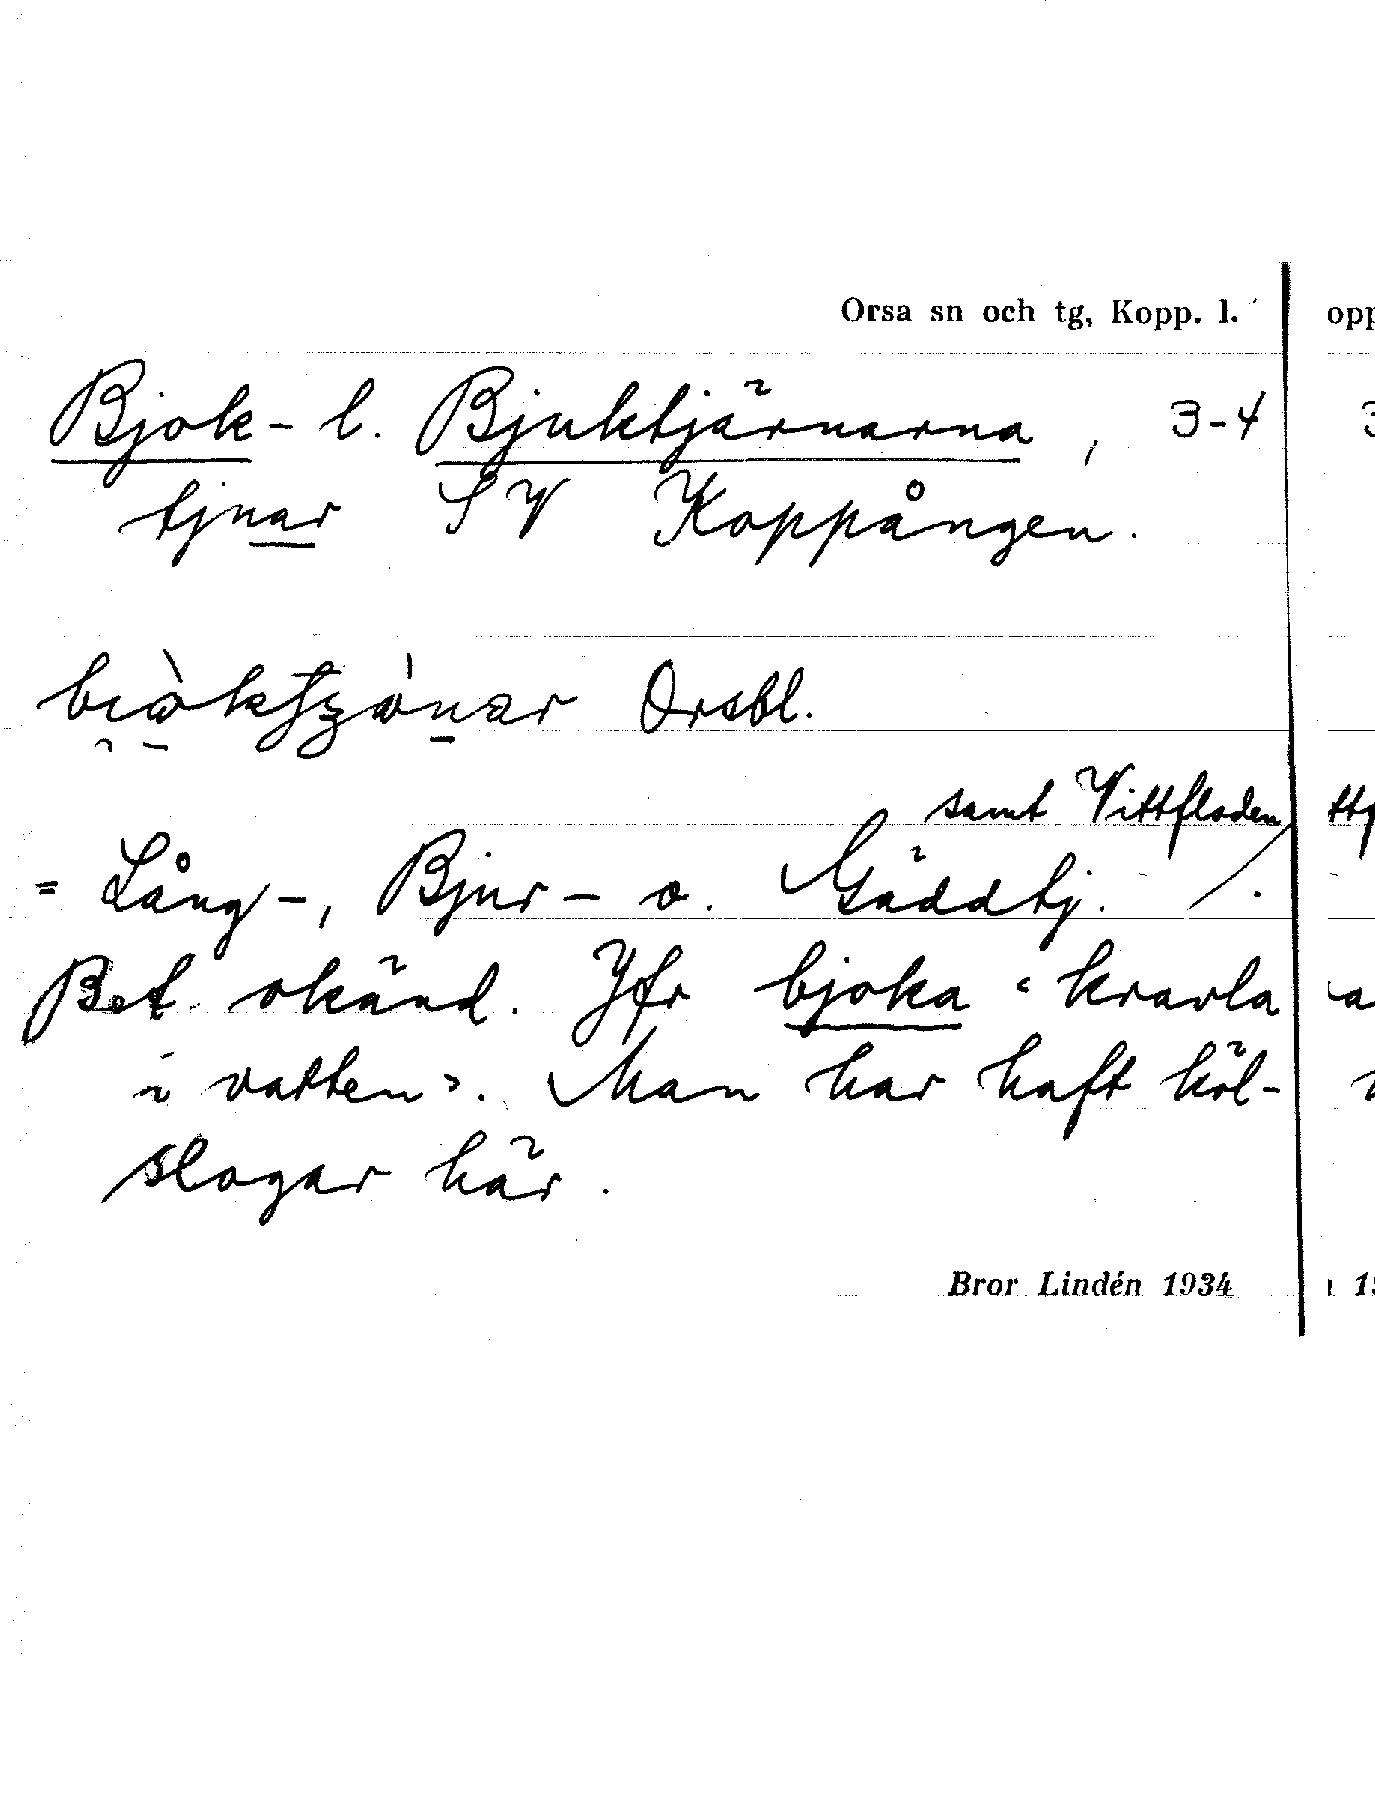 Orsa sn och tg, Kopp. l.
Bjok- l. Bjuktjärnarna, 3-4
tjnar SV Koppången.
Orsbl.
samt Vittfloden
= Lång-, Bjur- o. Gäddtj.
Bet. okänd. Jfr bjoka "kravla
i vatten". Man har haft höl-
slogar här.
Bror Lindén 1934